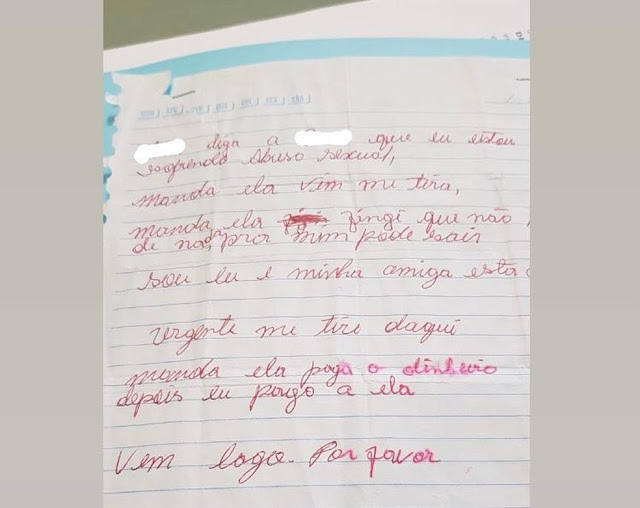 diga a que eu estou
sofrendo Abuso sexual,
manda ela vim me tira,
manda ela fingi que não
de nada pror mim pode sair
sou eu e minha amiga esta
urgente me tire daqui
manda ela paga o dinheiro
depois eu pago a ela
Vem logo. Por favor